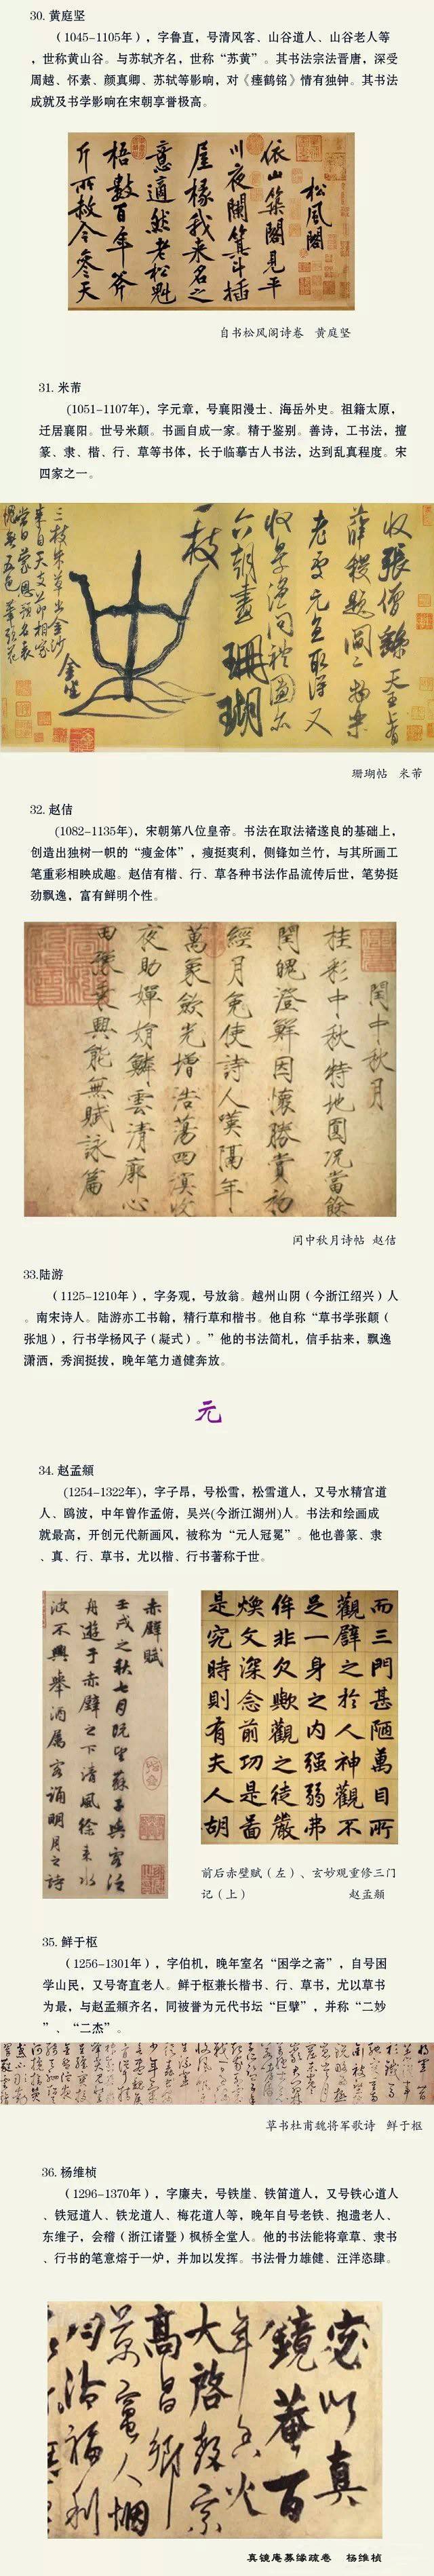 30. 黄庭坚
（1045-1105年），字鲁直，号清风客、山谷道人、山谷老人等
，世称黄山谷。与苏轼齐名，世称“苏黄”。其书法宗法晋唐，深受
周越、怀素、颜真卿、苏轼等影响，对《瘗鹤铭》情有独钟。其书法
成就及书学影响在宋朝享誉极高。
松风阁
依山築閣見平
川夜闌箕斗插
屋椽我来名之
意適然老松魁
梧數百年斧
斤所赦今參天
自书松风阁诗卷 黄庭坚
31. 米芾
(1051-1107年)，字元章，号襄阳漫士、海岳外史。祖籍太原，
迁居襄阳。世号米颠。书画自成一家。精于鉴别。善诗，工书法，擅
篆、隶、楷、行、草等书体，长于临摹古人书法，达到乱真程度。宋
四家之一。
收張僧繇天王上有
薛稷題閻二物樂
老處元直取得又
收景温问禮圖亦
六朝畫珊瑚
枝
金坐
三枝朱草出金沙
来自天支节相家
當日蒙恩预名表
愧無五色筆頭花
珊瑚帖 米芾
32. 赵佶
(1082-1135年)，宋朝第八位皇帝。书法在取法褚遂良的基础上，
创造出独树一帜的“瘦金体”，瘦挺爽利，侧锋如兰竹，与其所画工
笔重彩相映成趣。赵佶有楷、行、草各种书法作品流传后世，笔势挺
劲飘逸，富有鲜明个性。
閏中秋月
桂彩中秋特地圓况當餘
閏魄澄鮮因懷勝賞初
經月免使詩人嘆隔年
萬象斂光增浩蕩四溟收
夜助嬋娟鱗雲清廓心
田豫乘興能無賦詠篇
闰中秋月诗帖 赵佶
33.陆游
（1125-1210年），字务观，号放翁。越州山阴（今浙江绍兴）人
。南宋诗人。陆游亦工书翰，精行草和楷书。他自称“草书学张颠（
张旭），行书学杨风子（凝式）。”他的书法简札，信手拈来，飘逸
潇洒，秀润挺拔，晚年笔力遒健奔放。
元
34. 赵孟頫
(1254-1322年)，字子昂，号松雪，松雪道人，又号水精宫道
人、鸥波，中年曾作孟俯，吴兴(今浙江湖州)人。书法和绘画成
就最高，开创元代新画风，被称为“元人冠冕”。他也善篆、隶
、真、行、草书，尤以楷、行书著称于世。
赤壁賦
壬戌之秋七月既望蘇子與客泛
舟遊于赤壁之下清風徐来水
波不興舉酒属客誦明月之詩
而三門甚陋萬目所
觀譬之於人神觀不
足一身之内强弱弗
侔非欠歟觀之徒嚴
煥文深念前功是啚
是究時則有夫人胡
前后赤壁赋（左）、玄妙观重修三门
记（上） 赵孟頫
35. 鲜于枢
（1256-1301年），字伯机，晚年室名“困学之斋”，自号困
学山民，又号寄直老人。鲜于枢兼长楷书、行、草书，尤以草书
为最，与赵孟頫齐名，同被誉为元代书坛“巨擘”，并称“二妙
”、“二杰”。
草书杜甫魏将军歌诗 鲜于枢
36. 杨维桢
（1296-1370年），字廉夫，号铁崖、铁笛道人，又号铁心道人
、铁冠道人、铁龙道人、梅花道人等，晚年自号老铁、抱遗老人、
东维子，会稽（浙江诸暨）枫桥全堂人。他的书法能将章草、隶书
、行书的笔意熔于一炉，并加以发挥。书法骨力雄健、汪洋恣肆。
宓以真
鏡菴百
年香火
大啓教宗
高昌鄉
福利
真镜庵募缘疏卷 杨维桢